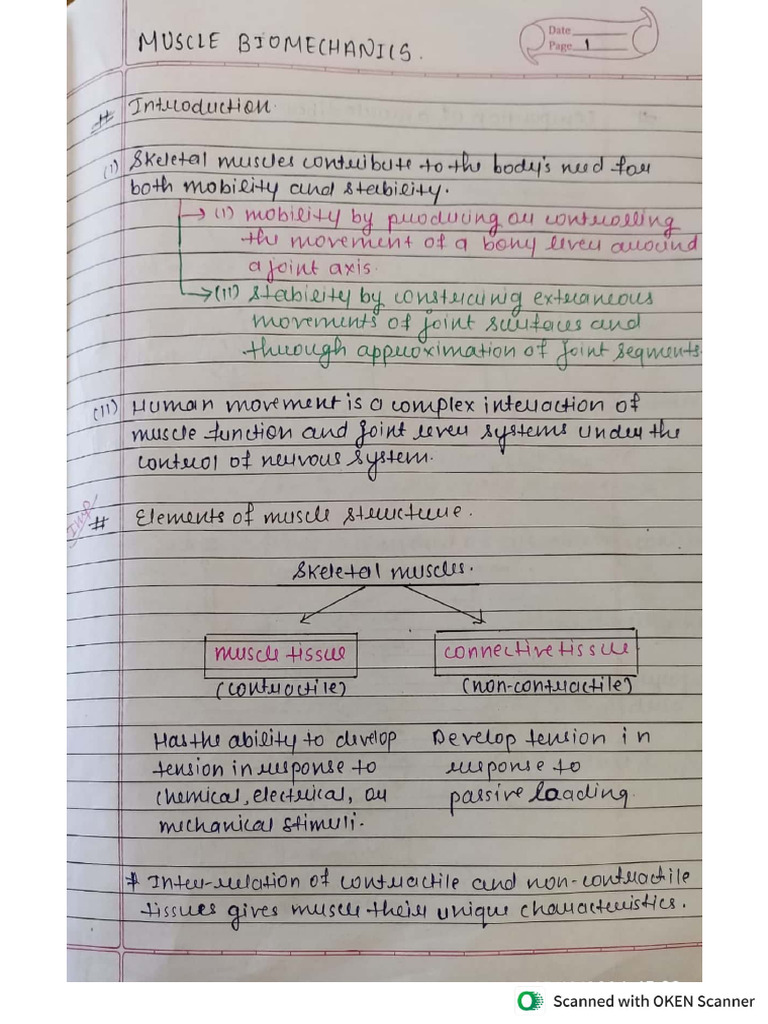 MUSCLE BIOMECHANICS.
Date
Page 1
# Introduction.
(i) Skeletal muscles contribute to the body's need for
both mobility and stability.
→ (i) mobility by producing or controlling
the movement of a bony lever around
a joint axis.
→ (ii) stability by constraining extraneous
movements of joint surfaces and
through approximation of joint segments.
(ii) Human movement is a complex interaction of
muscle function and joint lever systems under the
control of nervous system.
Imp # Elements of muscle structure.
Skeletal muscles.
muscle tissue connective tissue
(contractile) (non-contractile)
Has the ability to develop Develop tension in
tension in response to response to
chemical, electrical, or passive loading.
mechanical stimuli.
* Inter-relation of contractile and non-contractile
tissues gives muscle their unique characteristics.
Scanned with OKEN Scanner